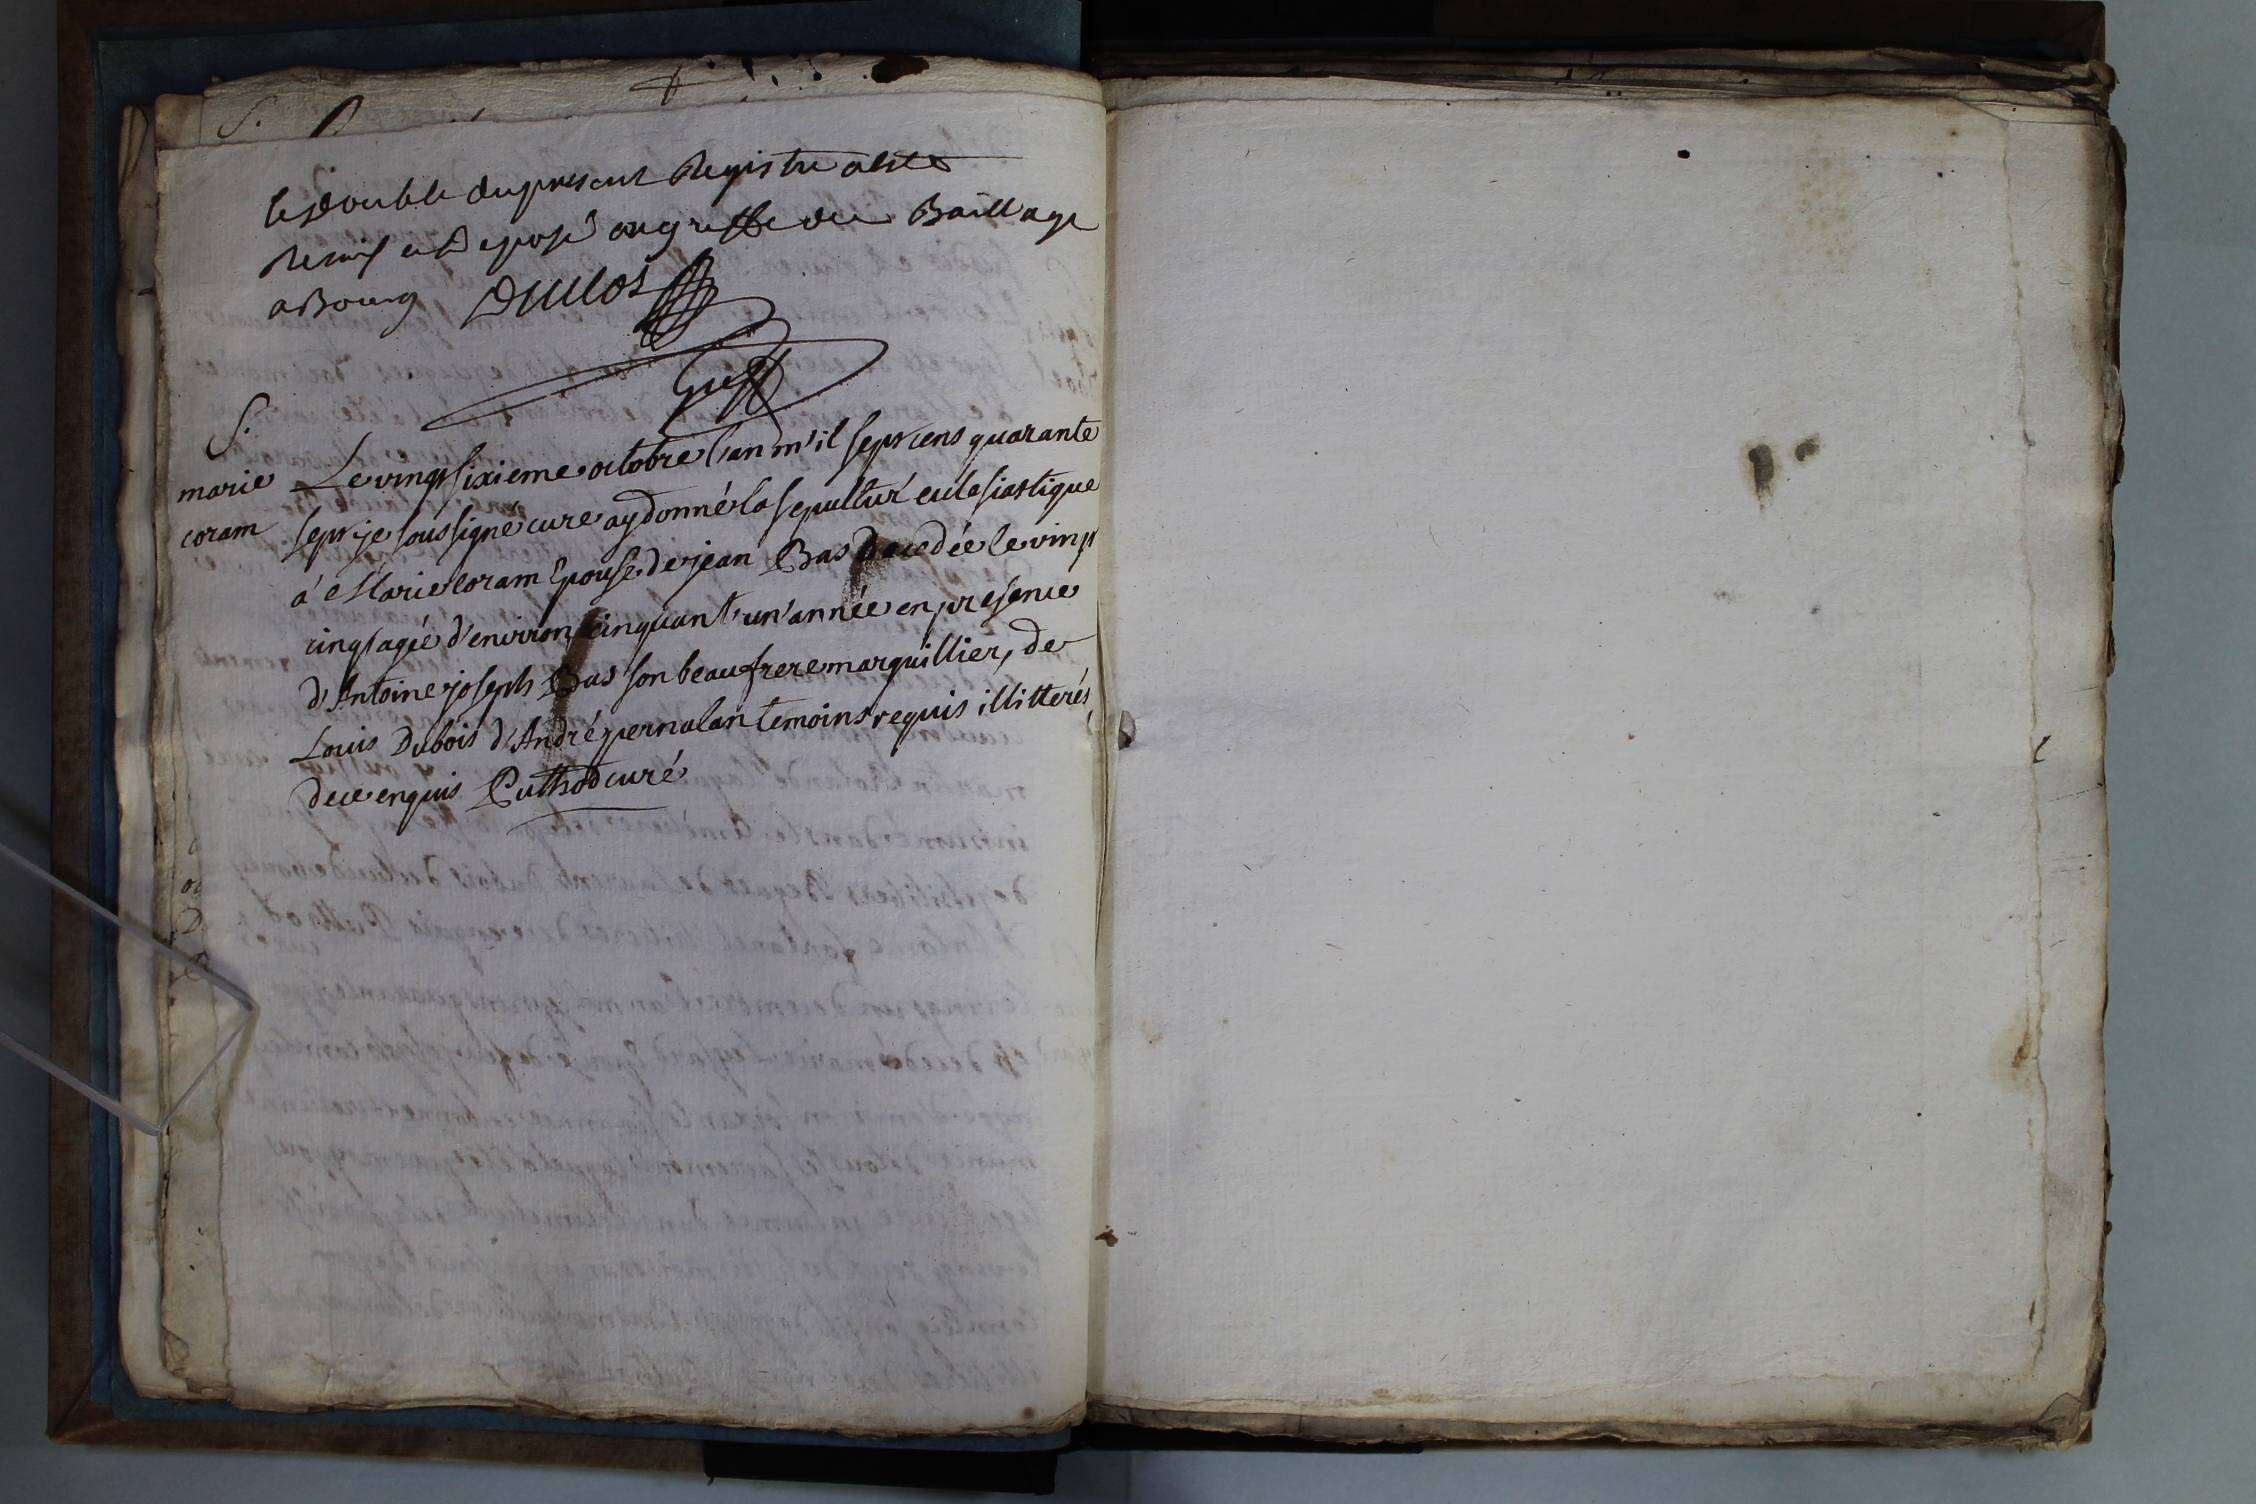 le double du present Registre a esté
Remis et Deposé au greffe du Baillage
a Bourg Duclos
Greff
S.
marie
coram
Le vingt sixieme octobre l'an m'il sept cens quarante
sept je soussigné curé ay donné la sepultur' eclesiastique
á Marie coram Epouse de jean Bas decedée le vingt
cinq agée d'environ cinquant'un'année en presence
d'Antoine joseph Bas son beaufrere marguillier, de
Louis Dubois d'André pernalan temoins requis illitterés
de ce enquis Puthod curé